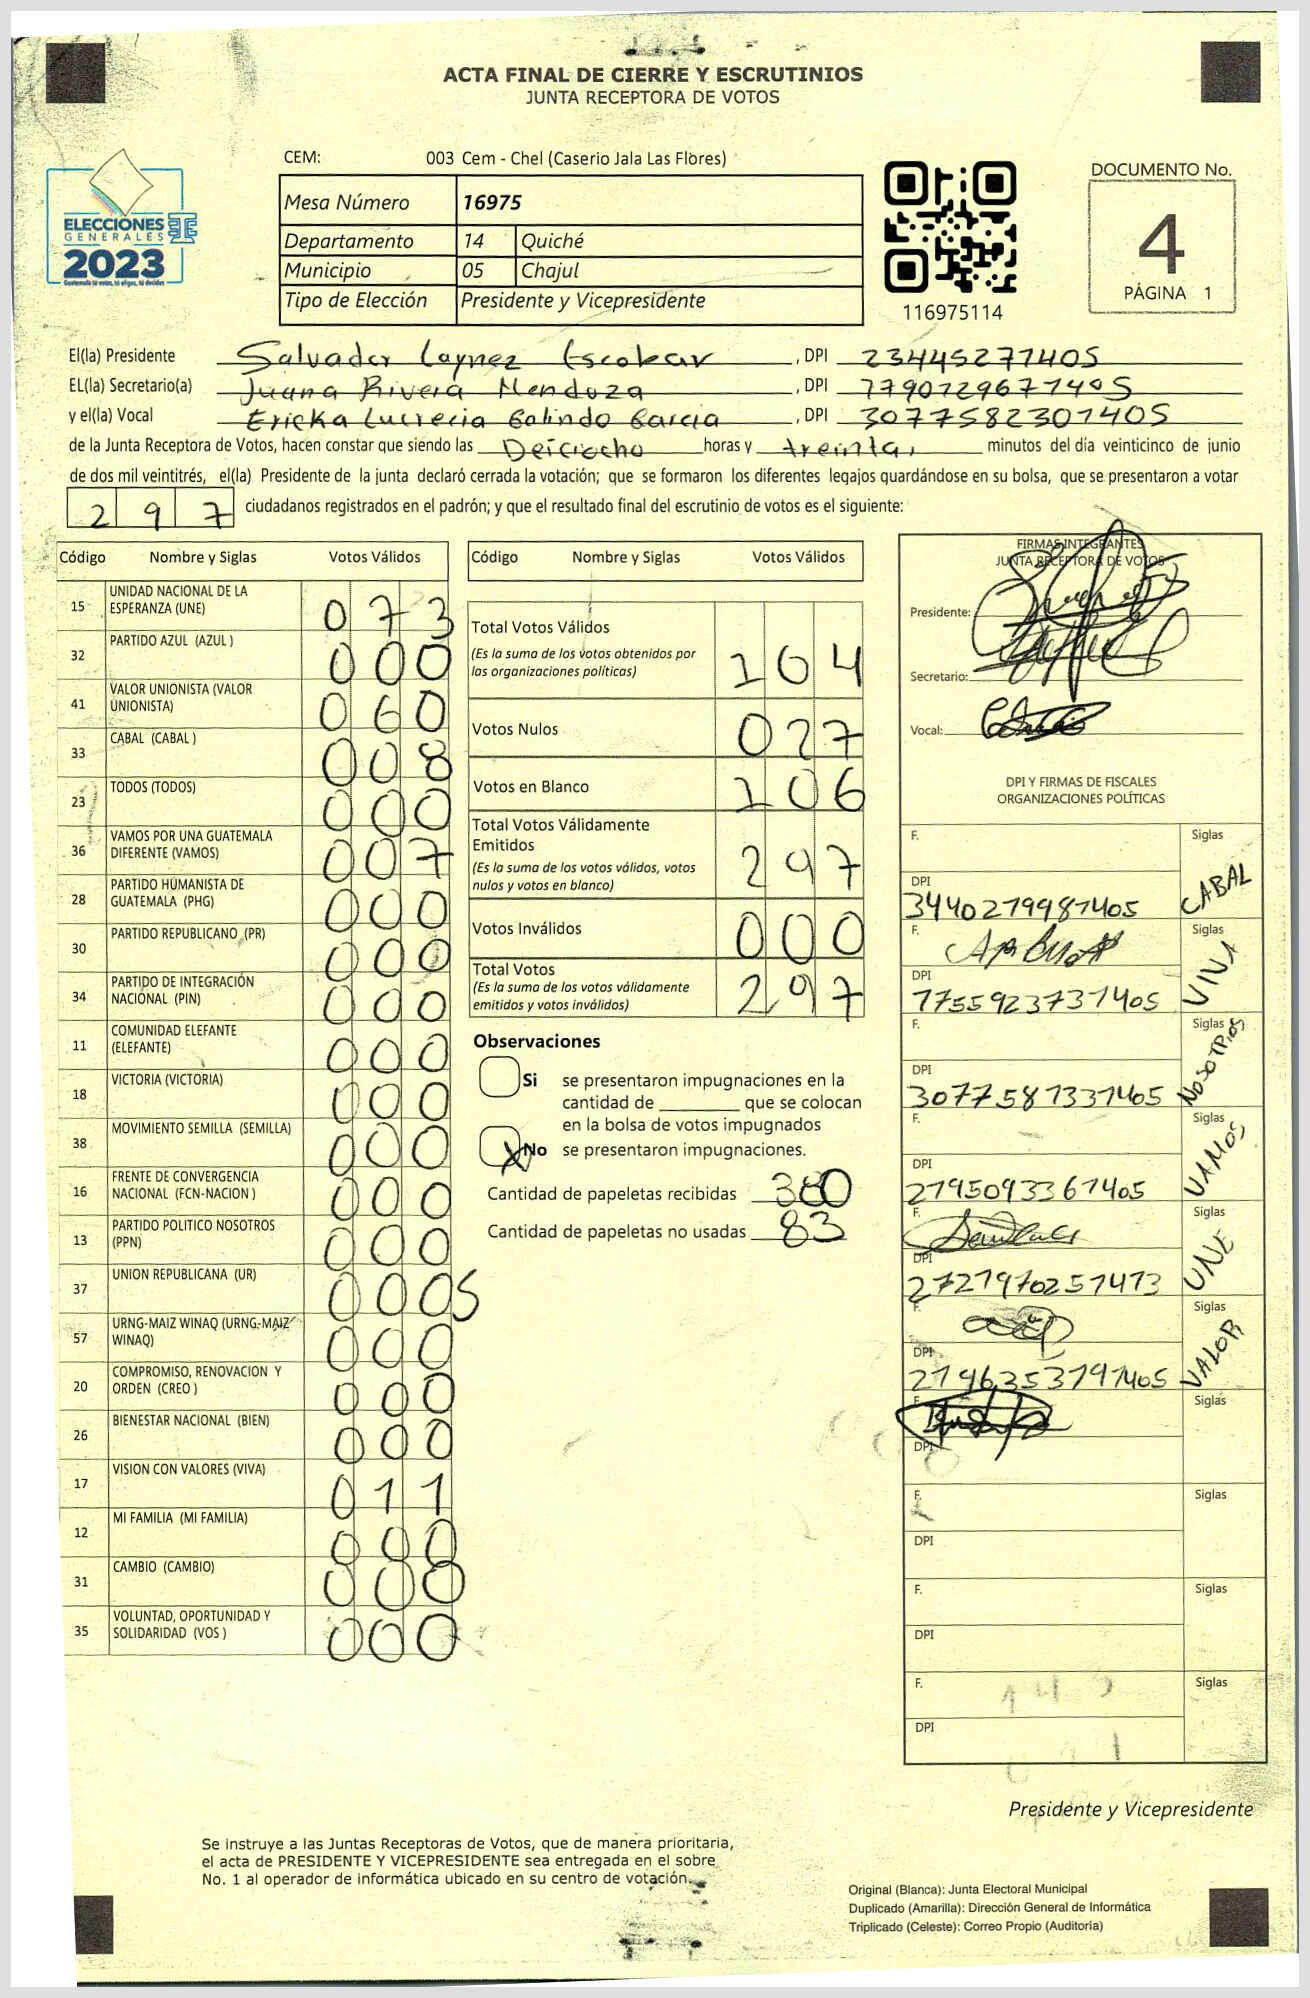 ACTA FINAL DE CIERRE Y ESCRUTINIOS
JUNTA RECEPTORA DE VOTOS
CEM: 003 Cem - Chel (Caserio Jala Las Flores)
ELECCIONES
GENERALES
2023
Guatemala tú votas, tú eliges, tú decides
Mesa Número 16975
Departamento 14 Quiché
Municipio 05 Chajul
Tipo de Elección Presidente y Vicepresidente
116975114
DOCUMENTO No.
4
PÁGINA 1
El(la) Presidente Salvador Laynez Escobar, DPI 234452771405
EL(la) Secretario(a) Juana Rivera Mendoza, DPI 7790729671405
y el(la) Vocal Ericka Lucrecia Galindo Garcia, DPI 3077582301405
de la Junta Receptora de Votos, hacen constar que siendo las Deiciocho horas y treinta, minutos del día veinticinco de junio
de dos mil veintitrés, el(la) Presidente de la junta declaró cerrada la votación; que se formaron los diferentes legajos guardándose en su bolsa, que se presentaron a votar
2 9 7 ciudadanos registrados en el padrón; y que el resultado final del escrutinio de votos es el siguiente:
Código Nombre y Siglas Votos Válidos
15 UNIDAD NACIONAL DE LA ESPERANZA (UNE) 0 7 3
32 PARTIDO AZUL (AZUL ) 0 0 0
41 VALOR UNIONISTA (VALOR UNIONISTA) 0 6 0
33 CABAL (CABAL ) 0 0 8
23 TODOS (TODOS) 0 0 0
36 VAMOS POR UNA GUATEMALA DIFERENTE (VAMOS) 0 0 7
28 PARTIDO HUMANISTA DE GUATEMALA (PHG) 0 0 0
30 PARTIDO REPUBLICANO (PR) 0 0 0
34 PARTIDO DE INTEGRACIÓN NACIONAL (PIN) 0 0 0
11 COMUNIDAD ELEFANTE (ELEFANTE) 0 0 0
18 VICTORIA (VICTORIA) 0 0 0
38 MOVIMIENTO SEMILLA (SEMILLA) 0 0 0
16 FRENTE DE CONVERGENCIA NACIONAL (FCN-NACION ) 0 0 0
13 PARTIDO POLITICO NOSOTROS (PPN) 0 0 0
37 UNION REPUBLICANA (UR) 0 0 0 5
57 URNG-MAIZ WINAQ (URNG-MAIZ WINAQ) 0 0 0
20 COMPROMISO, RENOVACION Y ORDEN (CREO ) 0 0 0
26 BIENESTAR NACIONAL (BIEN) 0 0 0
17 VISION CON VALORES (VIVA) 0 1 1
12 MI FAMILIA (MI FAMILIA) 0 0 0
31 CAMBIO (CAMBIO) 0 0 0
35 VOLUNTAD, OPORTUNIDAD Y SOLIDARIDAD (VOS ) 0 0 0
Código Nombre y Siglas Votos Válidos
Total Votos Válidos 1 6 4
(Es la suma de los votos obtenidos por
las organizaciones políticas)
Votos Nulos 0 2 7
Votos en Blanco 1 0 6
Total Votos Válidamente
Emitidos 2 9 7
(Es la suma de los votos válidos, votos
nulos y votos en blanco)
Votos Inválidos 0 0 0
Total Votos 2 9 7
(Es la suma de los votos válidamente
emitidos y votos inválidos)
Observaciones
Si se presentaron impugnaciones en la
cantidad de ________ que se colocan
en la bolsa de votos impugnados
X No se presentaron impugnaciones.
Cantidad de papeletas recibidas 380
Cantidad de papeletas no usadas 83
FIRMAS INTEGRANTES
JUNTA RECEPTORA DE VOTOS
Presidente:
Secretario:
Vocal:
DPI Y FIRMAS DE FISCALES
ORGANIZACIONES POLÍTICAS
F. Siglas
DPI CABAL
3440279981405
F. Siglas
DPI VIVA
1755923731405
F. Siglas
DPI NOSOTROS
3077587331405
F. Siglas
DPI VAMOS
2795093361405
F. Siglas
DPI UNE
2727970251413
F. Siglas
DPI VALOR
2796353791405
F. Siglas
DPI
F. Siglas
DPI
F. Siglas
DPI
F. Siglas
DPI
Presidente y Vicepresidente
Se instruye a las Juntas Receptoras de Votos, que de manera prioritaria,
el acta de PRESIDENTE Y VICEPRESIDENTE sea entregada en el sobre
No. 1 al operador de informática ubicado en su centro de votación.
Original (Blanca): Junta Electoral Municipal
Duplicado (Amarilla): Dirección General de Informática
Triplicado (Celeste): Correo Propio (Auditoría)